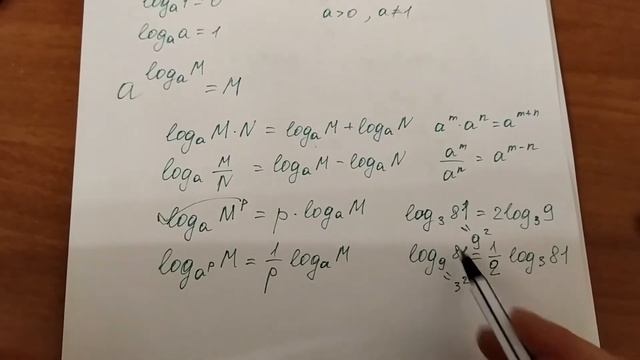 logₐ1 = 0
a>0, a≠1
logₐa = 1
a^(logₐM) = M
logₐM·N = logₐM + logₐN   aᵐ·aⁿ = aᵐ⁺ⁿ
logₐ M/N = logₐM − logₐN   aᵐ/aⁿ = aᵐ⁻ⁿ
logₐMᵖ = p·logₐM   log₃81 = 2log₃9
" 9²
log_(aᵖ)M = 1/p logₐM   log₉81 = 1/2 log₃81
" 3²